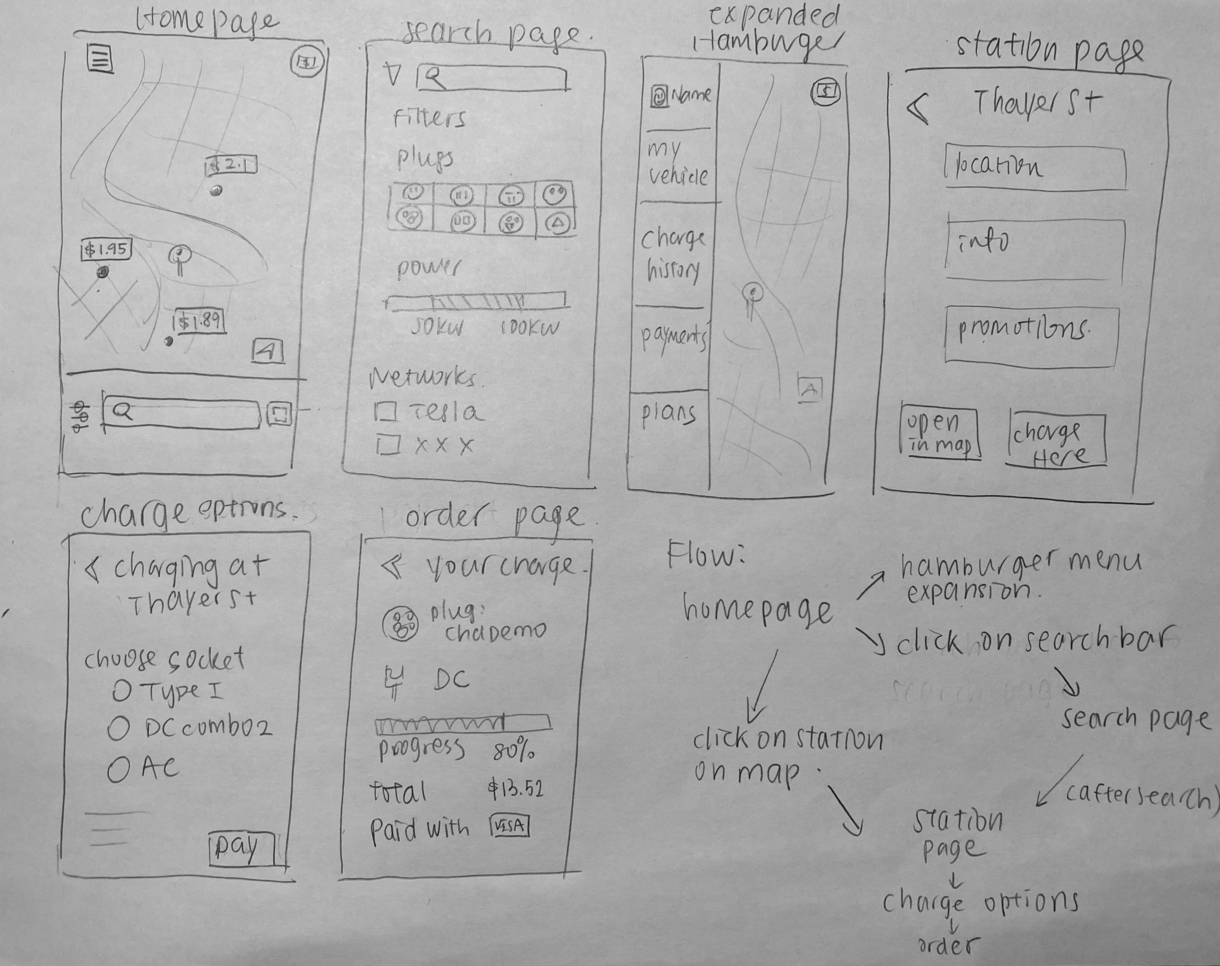 Homepage
$
$2.1
$1.95
$1.89
search page.
Filters
plugs
power
50KW 100KW
Networks.
Tesla
x x x
expanded
Hamburger
Name
my
vehicle
charge
history
payments
plans
$
station page
< Thayer St
location
info
promotions.
open
in map
charge
Here
charge options.
< charging at
Thayer St
choose socket
Type I
DC combo 2
AC
pay
order page.
< your charge.
plug:
chademo
DC
progress 80%
total $13.52
Paid with VISA
Flow:
homepage
hamburger menu
expansion.
click on search bar
search page
(after search)
click on station
on map.
station
page
charge options
order